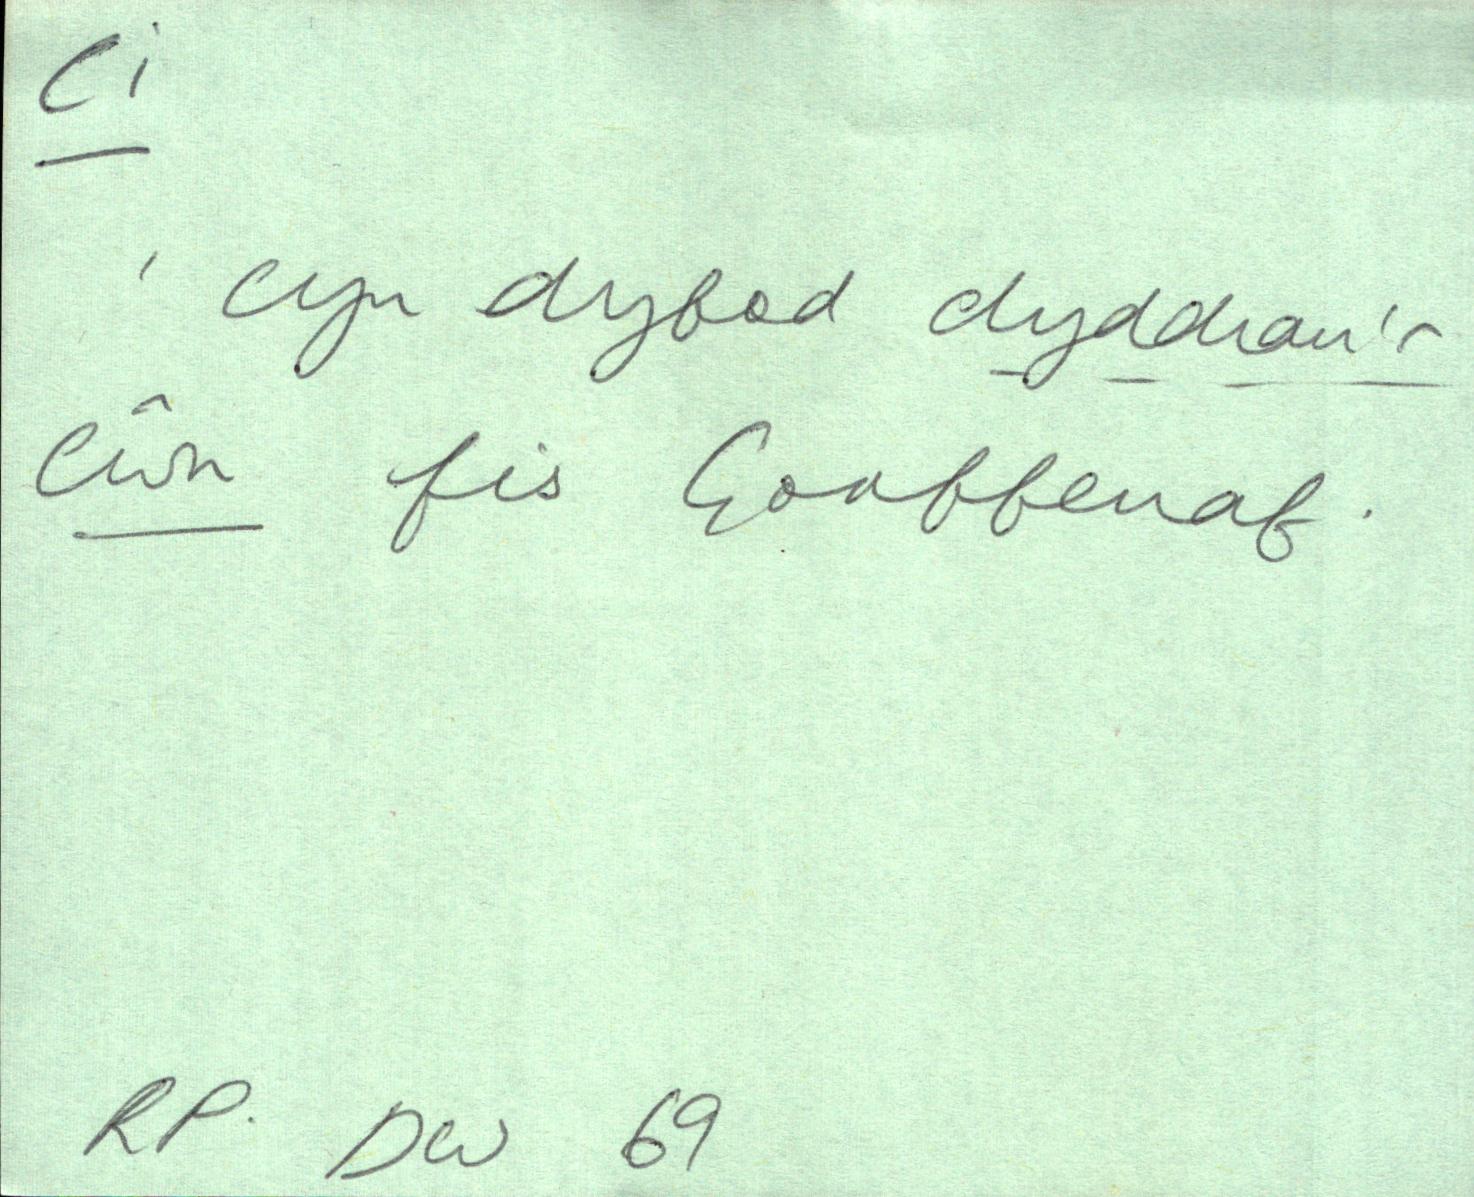 Ci
' cyn dyfod dyddiau'r
cŵn fis Gorffennaf.
RP. DW 69